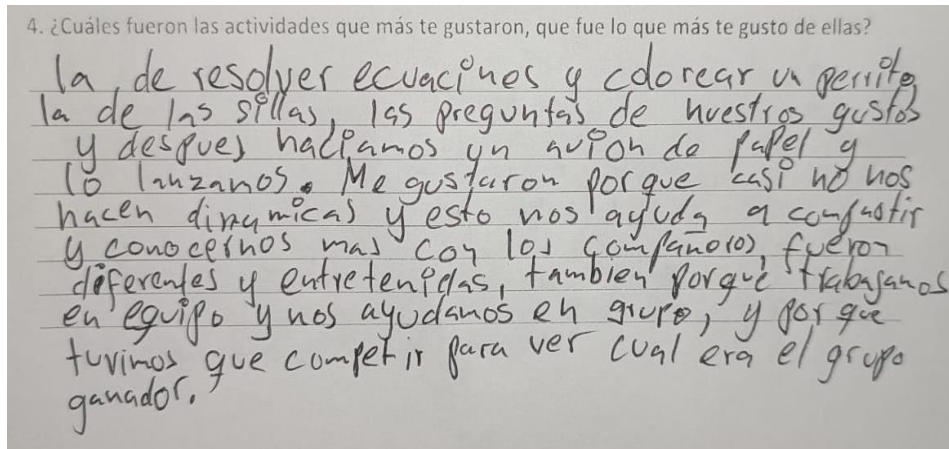 4. ¿Cuáles fueron las actividades que más te gustaron, que fue lo que más te gusto de ellas?
la de resolver ecuaciones y colorear un perrito,
la de las sillas, las preguntas de nuestros gustos
y despues haciamos un avion de papel y
lo lanzamos. Me gustaron porque casi no nos
hacen dinamicas y esto nos ayuda a compartir
y conocernos mas con los compañeros, fueron
diferentes y entretenidas, tambien porque trabajamos
en equipo y nos ayudamos en grupo, y por que
tuvimos que competir para ver cual era el grupo
ganador.